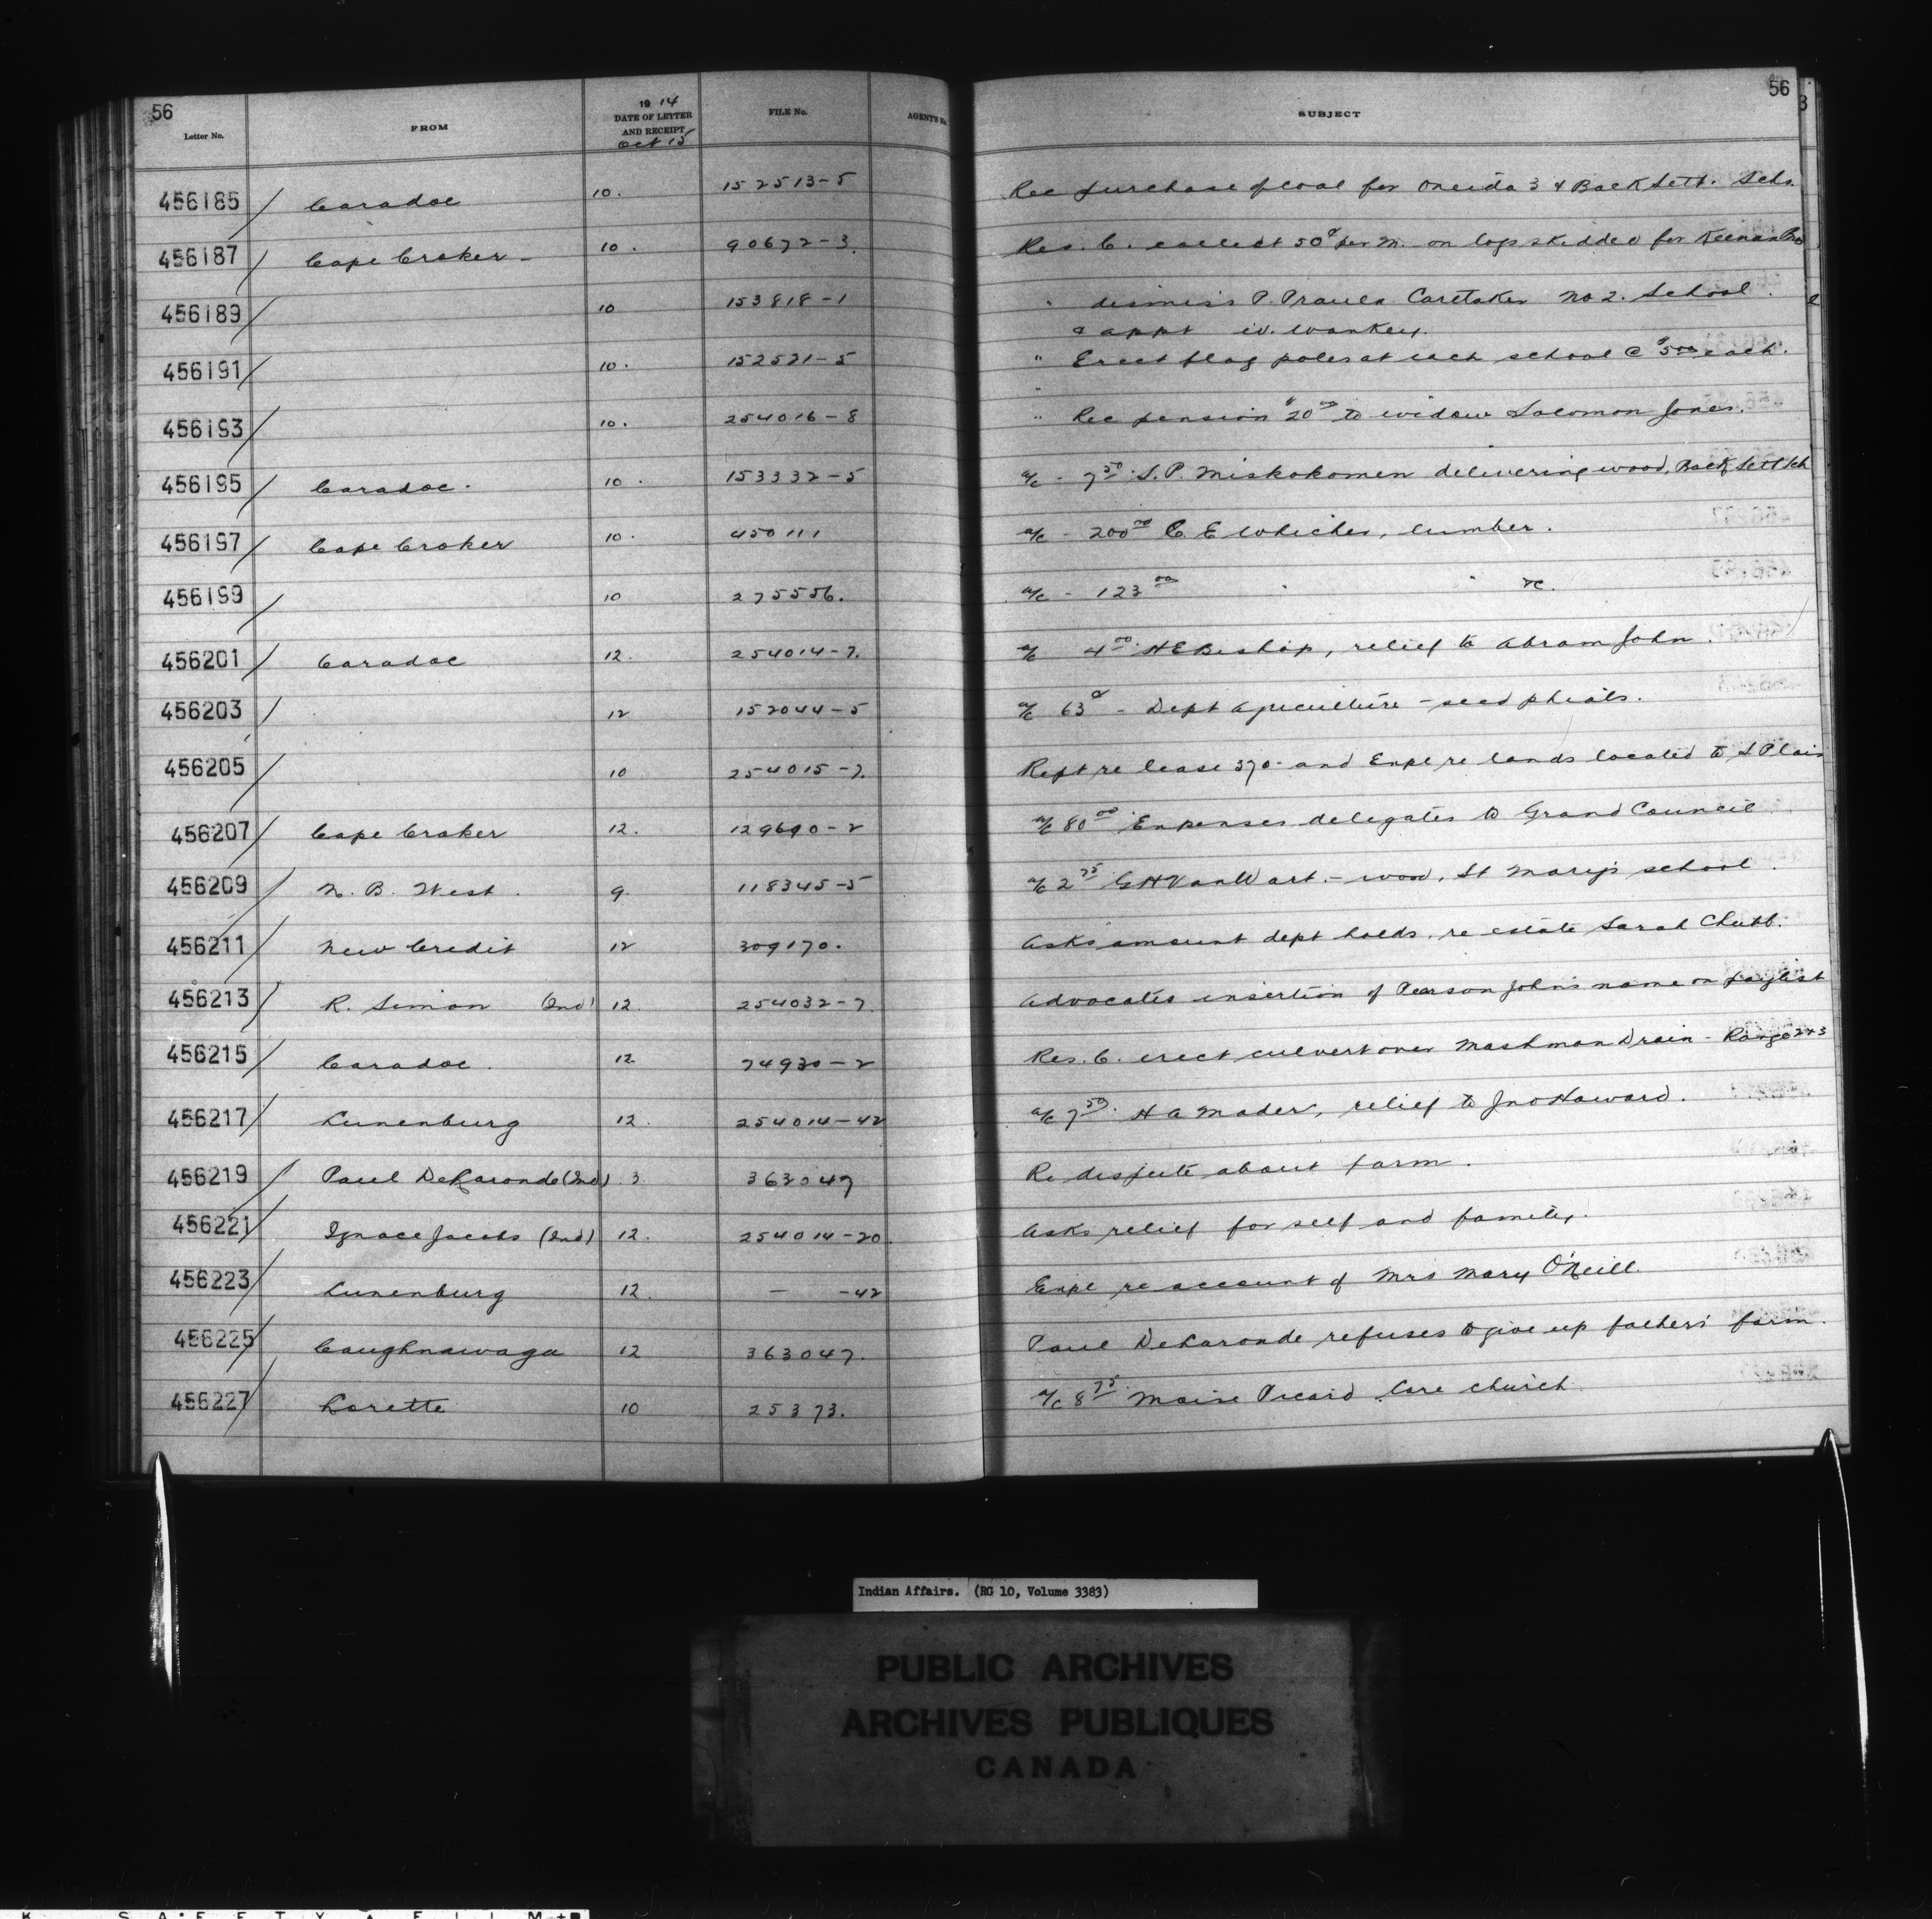 56
56
Letter No. FROM 1914 DATE OF LETTER AND RECEIPT Oct 15 FILE No. AGENTS No. SUBJECT
456185 Caradoc 10. 152513-5 Rec purchase of coal for Oneida 3 & Back Sett. Schs.
456187 Cape Croker - 10. 90672-3. Res. C. collect 50¢ per M. on logs skidded for Keenan Bro
456189 10 153818-1 " dismiss P. Caretaker No 2. School.
& appt W. Wankey.
456191 10. 152521-5 " Erect flag poles at each school @ $5.00 each.
456193 10. 254016-8 " Rec pension $20.00 to widow Solomon Jones.
456195 Caradoc. 10. 153332-5 a/c - 7.50 S.P. Miskokomen delivering wood, Back Sett Sch
456197 Cape Croker 10. 450111 a/c - 200.00 C. E Whicher, lumber.
456199 10 275556. a/c - 123.00 " " &c.
456201 Caradoc 12. 254014-7. a/c 4.00 H E Bishop, relief to Abram John.
456203 12 152044-5 a/c 63¢ - Dept Agriculture - seed phials.
456205 10 254015-7. Rept re lease 370 - and Expl re lands located to S. Plain
456207 Cape Croker 12. 129690-2 a/c 80.00 Expenses delegates to Grand Council
456209 N. B. West. 9. 118345-5 a/c 2.75 G H Van Wart. - wood, St Mary's school.
456211 New Credit 12 309170. Asks amount dept holds, re estate Sarah Chubb.
456213 R. Simon (Ind) 12. 254032-7. Advocates insertion of Pearson John's name on paylist
456215 Caradoc. 12 74930-2 Res. C. erect culvert over Mashman Drain - Range 2&3
456217 Lunenburg 12. 254014-42 a/c 7.50. H A Mader, relief to Jno Howard.
456219 Paul DeLaronde (Ind) 3. 363047 Re dispute about farm.
456221 Ignace Jacobs (Ind) 12. 254014-20. Asks relief for self and family.
456223 Lunenburg 12. — -42 Expl re account of Mrs Mary O'Neill.
456225 Caughnawaga 12 363047. Paul DeLaronde refuses to give up father's farm.
456227 Lorette 10 25373. a/c 8.75. Moise Picard Care church
Indian Affairs. (RG 10, Volume 3383)
PUBLIC ARCHIVES
ARCHIVES PUBLIQUES
CANADA
K SAFETY FILM